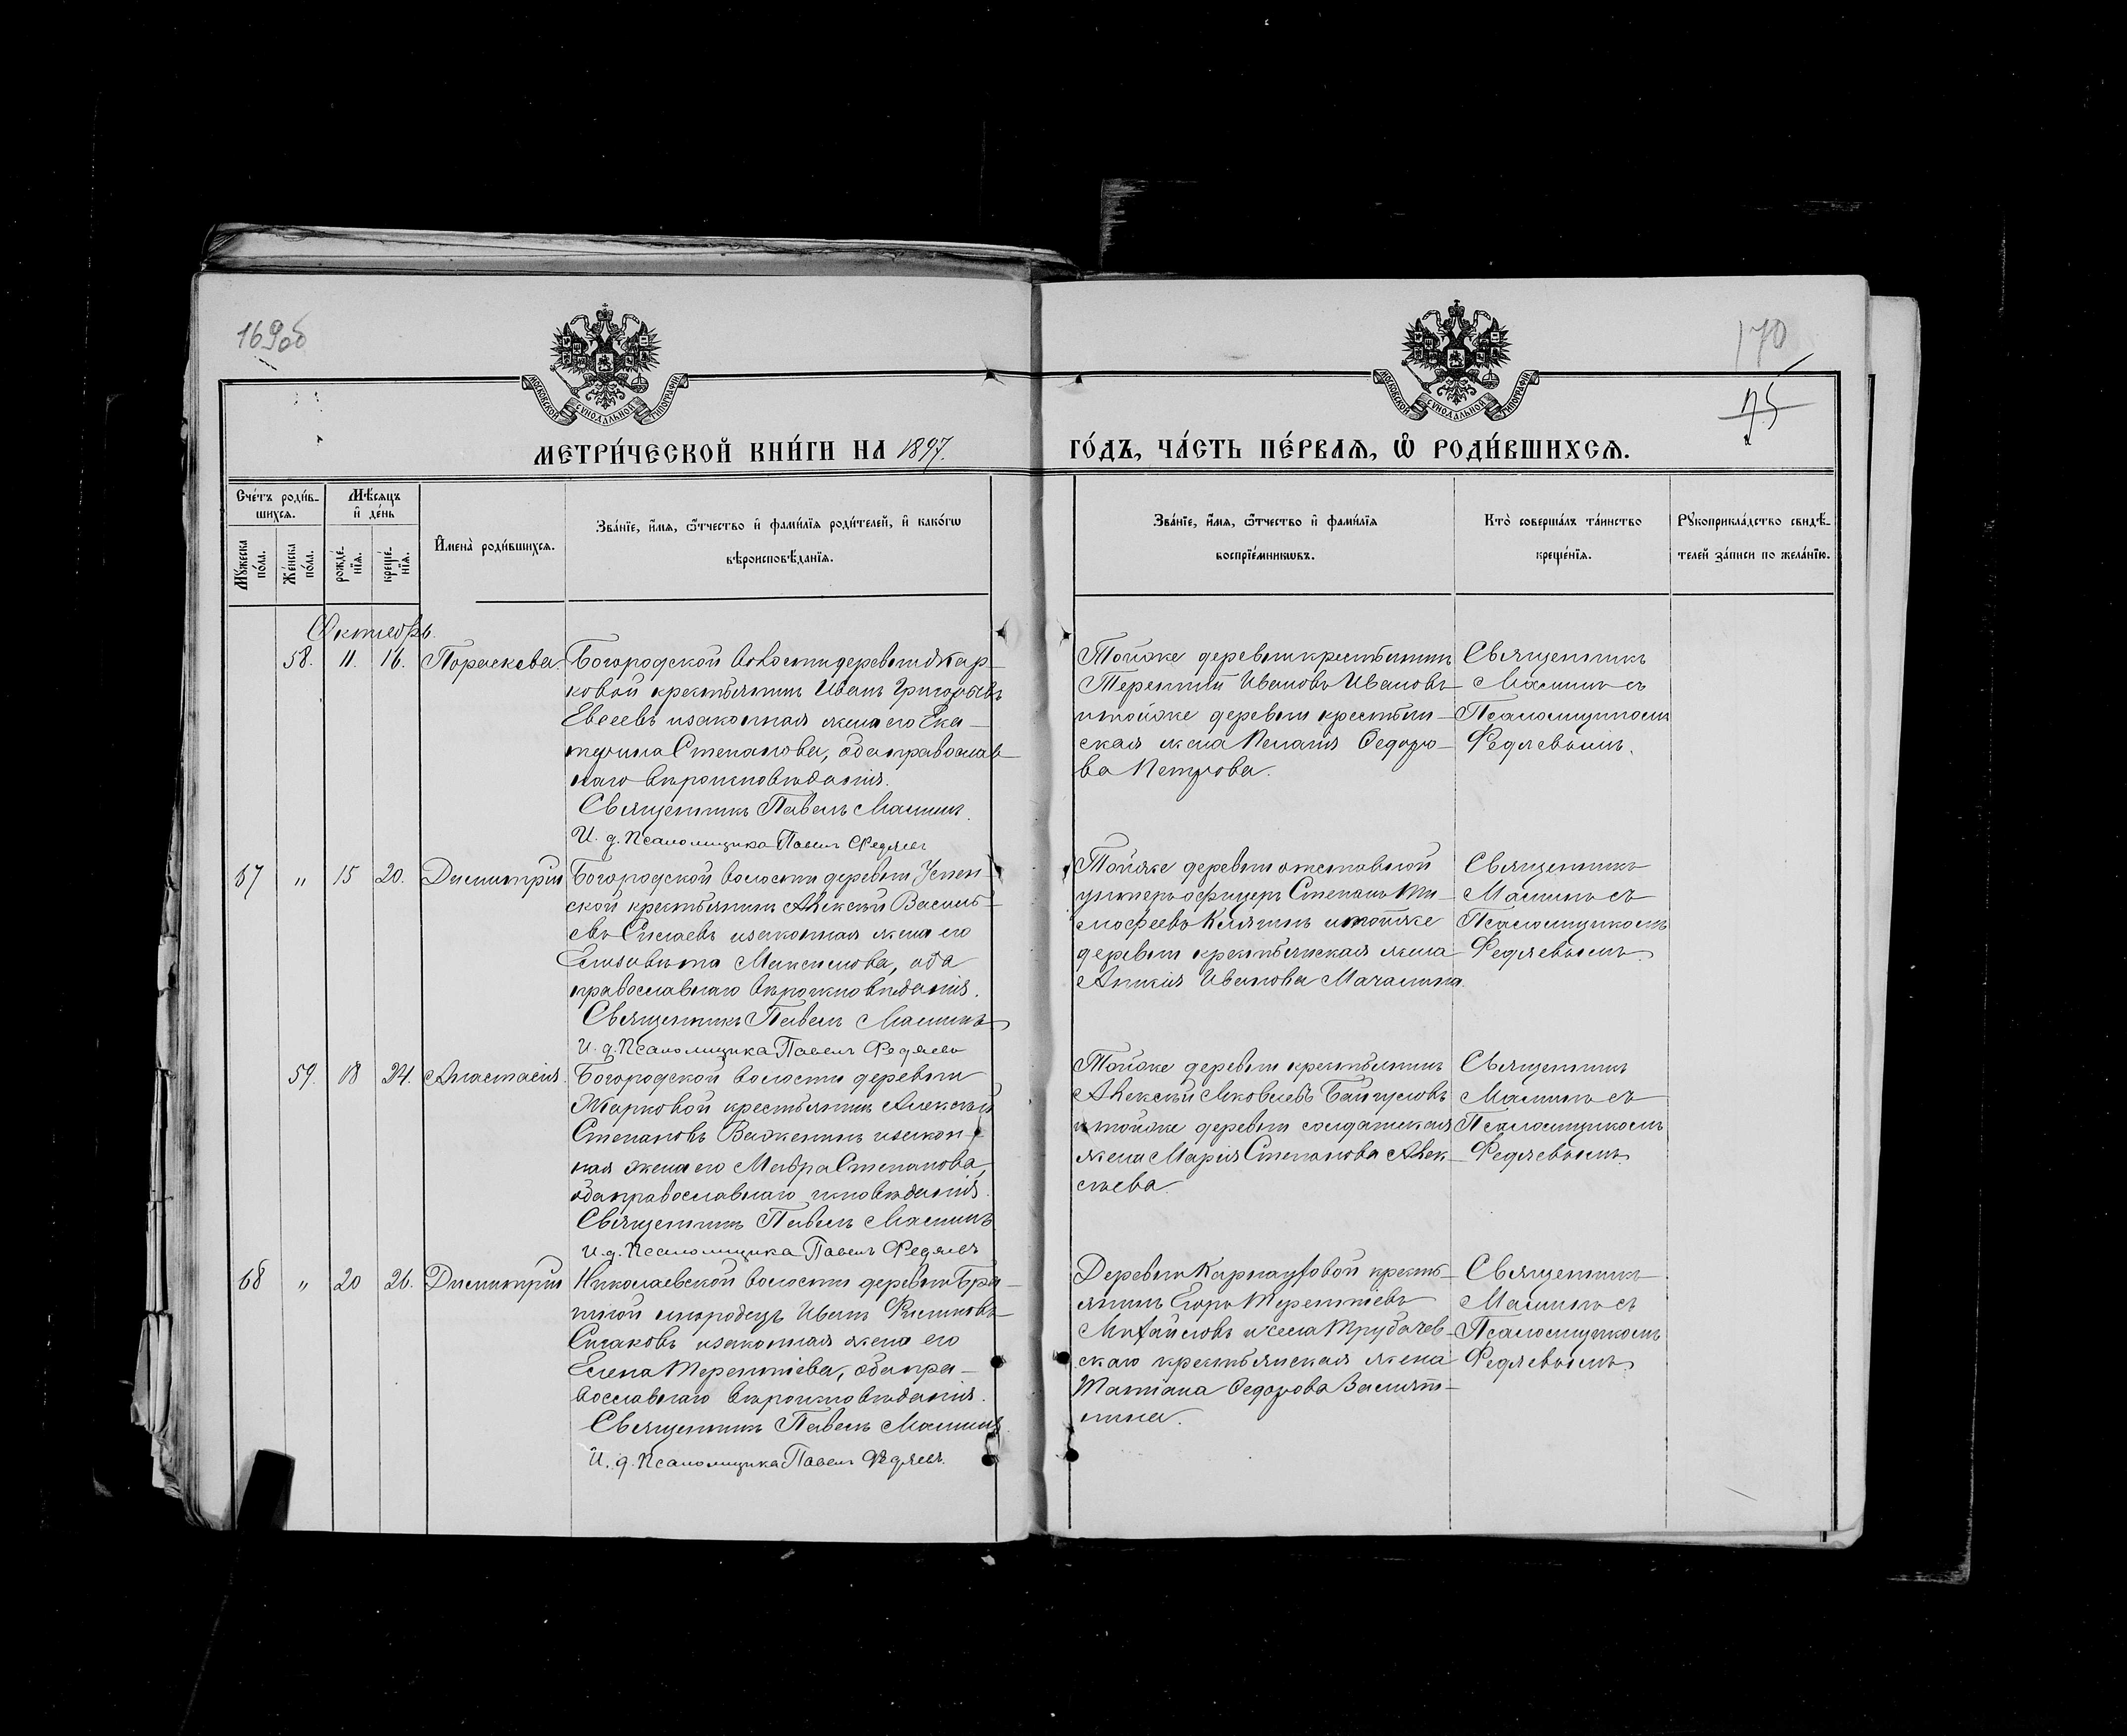 169об
170
75
МОСКОВСКОЙ СѴНОДАЛЬНОЙ ТИПОГРАФІИ
МОСКОВСКОЙ СѴНОДАЛЬНОЙ ТИПОГРАФІИ
МЕТРИ́ЧЕСКОЙ КНИ́ГИ НА 1897. ГО́ДЪ, ЧА́СТЬ ПЕ́РВАЯ, Ѡ҆ РОДИ́ВШИХСЯ.
Сче́тъ роди́в-
шихся.
Мѣ́сяцъ
и҆ де́нь
Мꙋ́жеска по́ла.
Же́нска по́ла.
рожде́нїя.
креще́нїя.
И҆мена̀ роди́вшихся.
Зва́нїе, и҆́мя, ѻ҆́тчество и҆ фами́лїя роди́телей, и҆ како́гѡ
вѣроисповѣ́данїя.
Зва́нїе, и҆́мя, ѻ҆́тчество и҆ фами́лїя
воспрїе́мникѡвъ.
Кто̀ соверша́лъ та́инство
креще́нїя.
Рꙋкоприкла́дство свидѣ́-
телей за́писи по жела́нїю.
Октябрь.
58. 11. 16. Параскева.
Богородской волости деревни Жар-
ковой крестьянинъ Иванъ Григорьевъ
Евсеевъ и законная жена его Ека-
терина Степанова, оба православ-
наго вѣроисповѣданія.
Священникъ Павелъ Машинъ.
И. д. Псаломщика Павелъ Федяевъ
Тойже деревни крестьянинъ
Терентий Ивановъ Ивановъ
и тойже деревни крестьян-
ская жена Пелагія Ѳедоро-
ва Петрова.
Священникъ
Машинъ съ
Псаломщикомъ
Федяевымъ.
67 " 15 20. Димитрій
Богородской волости деревни Успен-
ской крестьянинъ Алексѣй Василь-
евъ Сисаевъ и законная жена его
Елизавѣта Максимова, оба
православнаго вѣроисповѣданія.
Священникъ Павелъ Машинъ
И. д. Псаломщика Павелъ Федяевъ
Тойже деревни отставной
унтеръ-офицеръ Степанъ Ти-
мофеевъ и тойже
деревни крестьянская жена
Ивановa Мачалина.
Священникъ
Машинъ съ
Псаломщикомъ
Федяевымъ.
59. 18 24. Анастасія.
Богородской волости деревни
Жарковой крестьянинъ Алексѣй
Степановъ Важенинъ и закон-
ная жена его Мавра Степанова,
оба православнаго исповѣданія.
Священникъ Павелъ Машинъ
И. д. Псаломщика Павелъ Федяевъ
Тойже деревни крестьянинъ
Алексѣй Яковлевъ Байгуловъ
и тойже деревни солдатская
жена Марія Степанова Алек-
сѣева.
Священникъ
Машинъ съ
Псаломщикомъ
Федяевымъ.
68 " 20 26. Димитрій
Николаевской волости деревни
инородецъ Иванъ Филиповъ
и законная жена его
Елена Терентіева, оба пра-
вославнаго вѣроисповѣданія.
Священникъ Павелъ Машинъ.
И. д. Псаломщика Павелъ Федяевъ.
Деревни Карнауховой кресть-
янинъ Егоръ Терентіевъ
Михайловъ и села Трубачев-
скаго крестьянская жена
Татіана Ѳедорова
Священникъ
Машинъ съ
Псаломщикомъ
Федяевымъ.